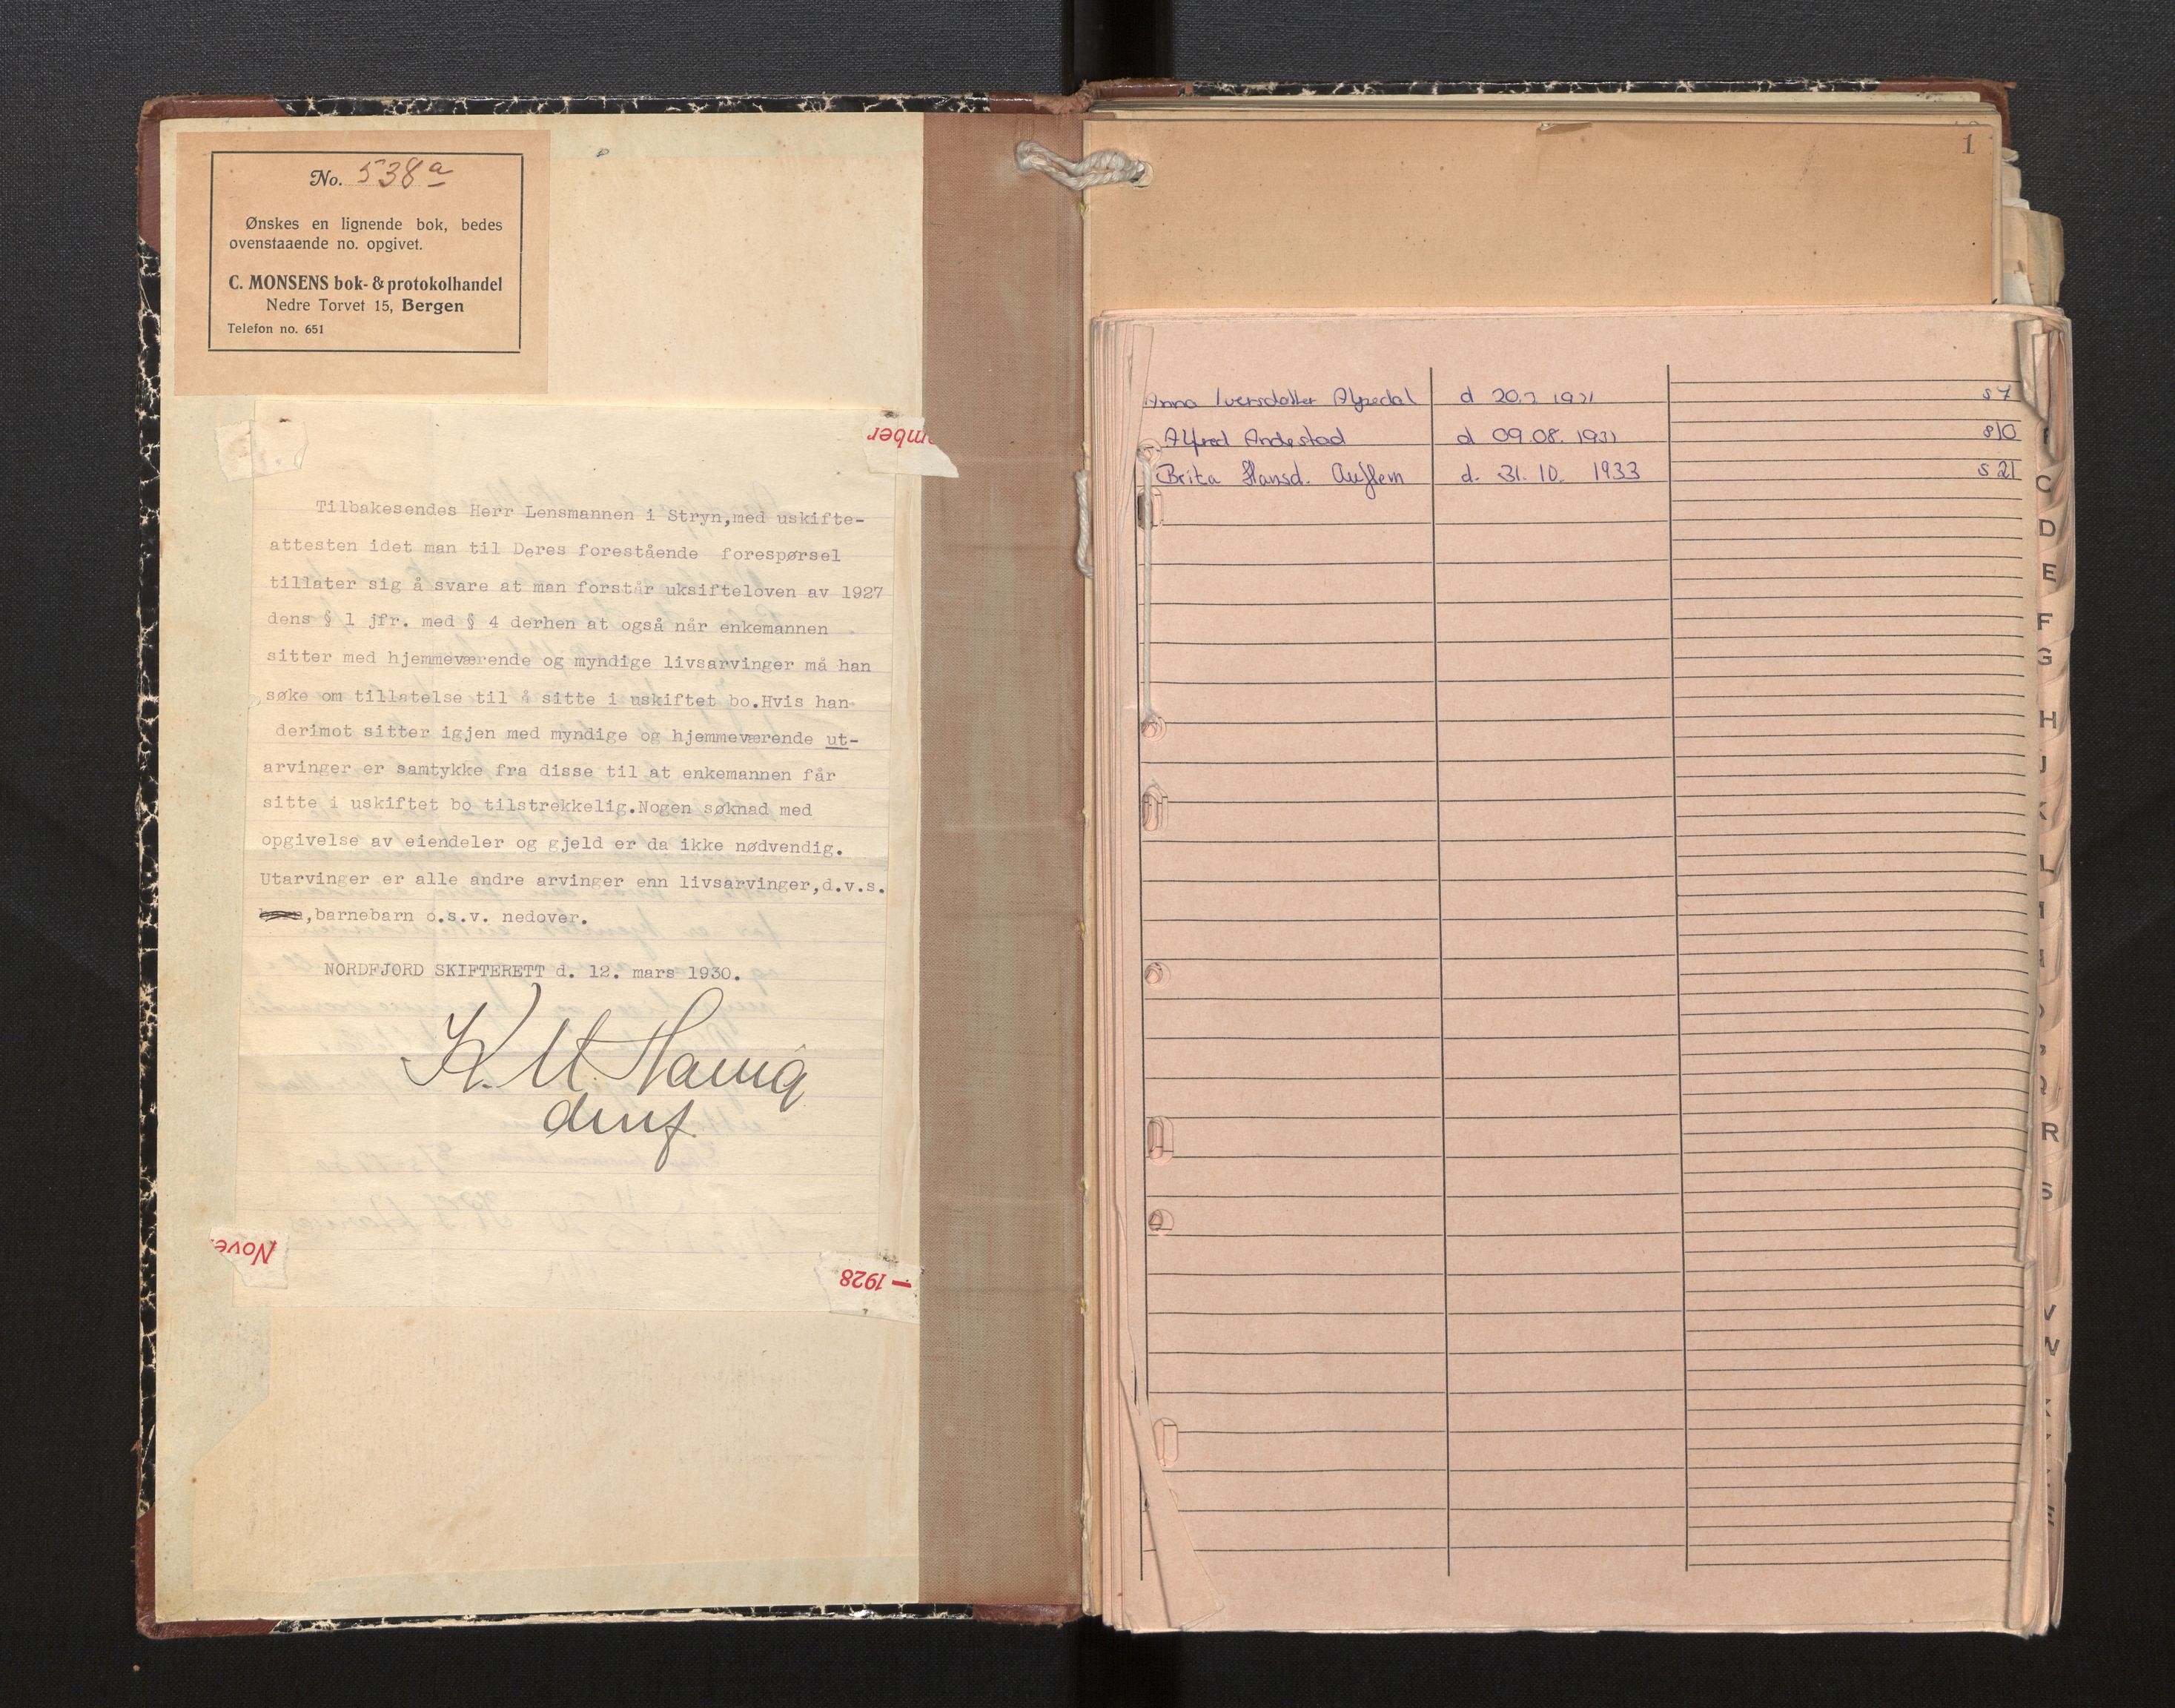 No. 538 a
Ønskes en lignende bok, bedes
ovenstaaende no. opgivet.
C. MONSENS bok- & protokolhandel
Nedre Torvet 15, Bergen
Telefon no. 651
ember
Tilbakesendes Herr Lensmannen i Stryn,med uskifte-
attesten idet man til Deres forestående forespørsel
tillater sig å svare at man forstår uksifteloven av 1927
dens § 1 jfr. med § 4 derhen at også når enkemannen
sitter med hjemmeværende og myndige livsarvinger må han
søke om tillatelse til å sitte i uskiftet bo.Hvis han
derimot sitter igjen med myndige og hjemmeværende ut-
arvinger er samtykke fra disse til at enkemannen får
sitte i uskiftet bo tilstrekkelig.Nogen søknad med
opgivelse av eiendeler og gjeld er da ikke nødvendig.
Utarvinger er alle andre arvinger enn livsarvinger,d.v.s.
barn,barnebarn o.s.v. nedover.
NORDFJORD SKIFTERETT d. 12. mars 1930.
K. M.
Nove
— 1928
1
Anna Iversdatter d 20.2 1931 s 7
Alfred Andestad d 09.08. 1931 s10
Brita Hansd. Auflem d. 31. 10. 1933 s 21
C
D
E
F
G
H
J
K
L
R
S
V
W